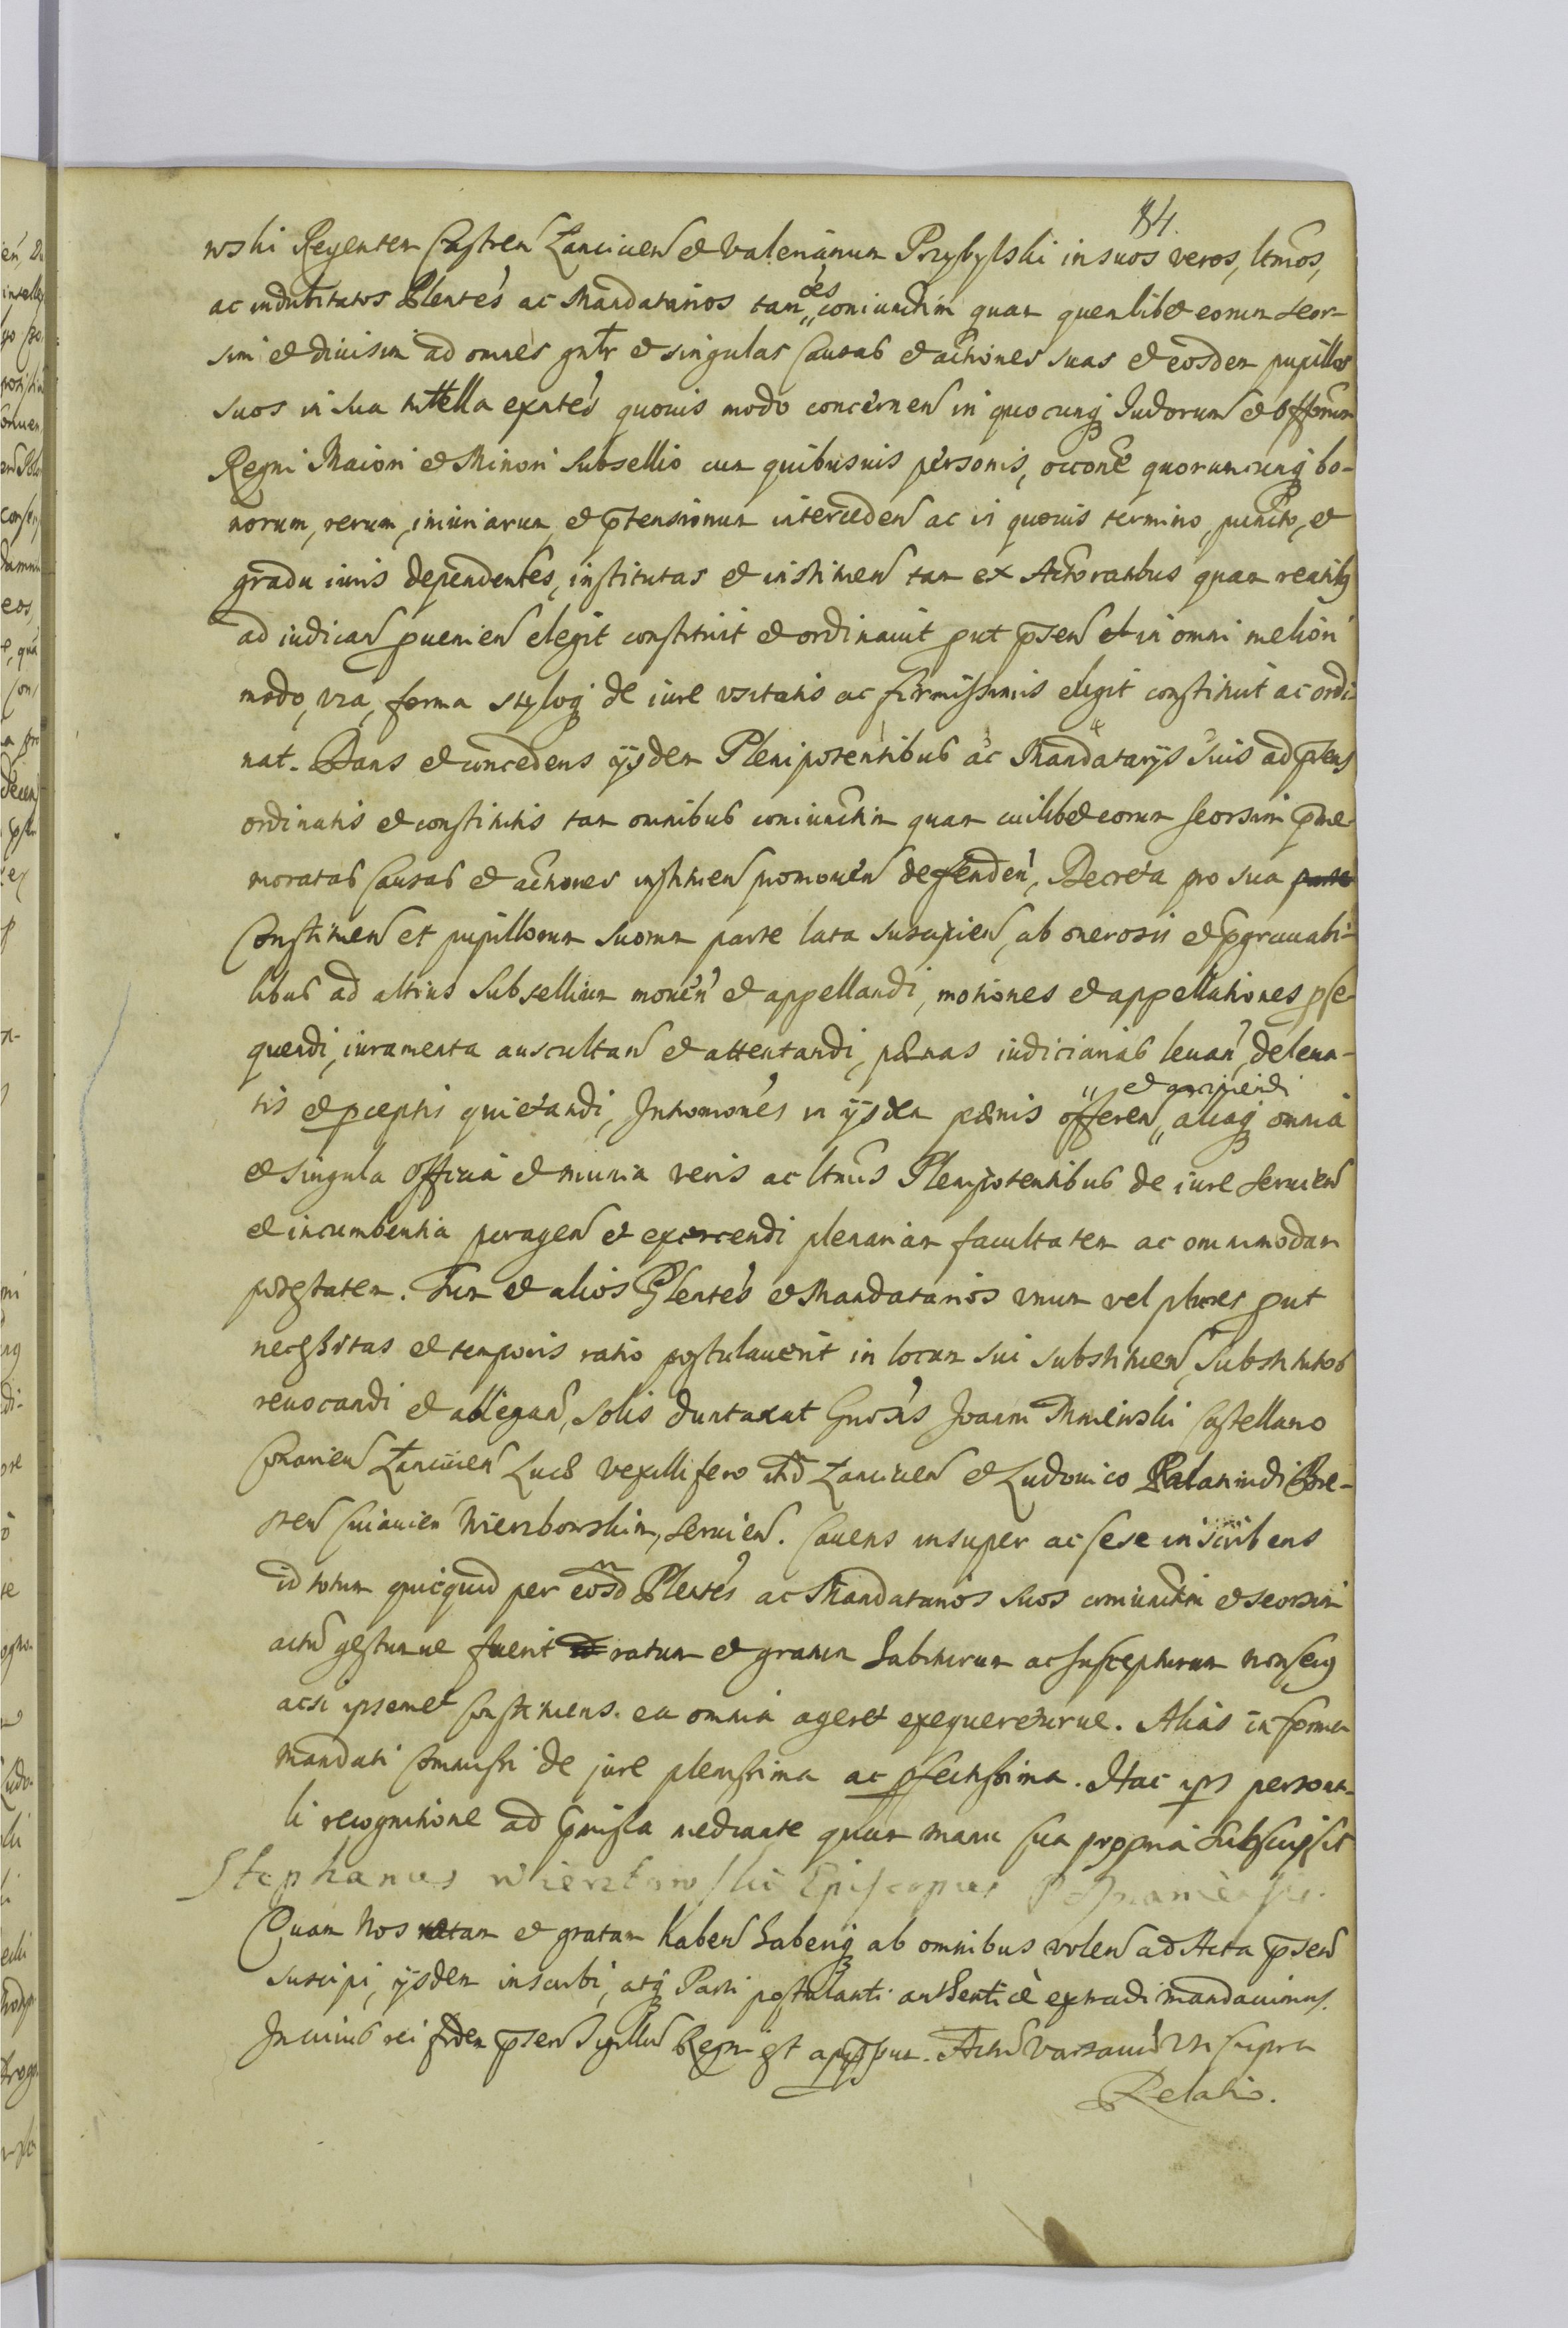 84.
wski Regentem Castren Lancicien et Valerianum Przybylski in suos veros, ltmos,
ac indubitatos Plentes ac Mandatarios tam oes coniunctim quam quemlibet eorum seor-
sim et diuisim ad omnes gnlr et singulas Causas et actiones suas et eosdem pupillos
suos in sua tuttella exntes quouis modo concernen in quocunq Iudiorum et Offiorum
Regni Maiori et Minori Subsellio cum quibusuis personis, occone quorumcunq bo-
norum, rerum, iniuriarum, et ptensionum interceden ac in quouis termino, puncto, et
gradu iuris dependentes, institutas et instituen tam ex Actoratibus quam reatibq
ad iudican puenien elegit constituit et ordinauit put psen et in omni meliori
modo, via, forma styloq de iure vsitatis ac firmissimis elegit constituit ac ordi
nat. Dans et concedens ijsdem Plenipotentibus ac Mandatarijs suis ad pens
ordinatis et constitutis tam omnibus coniunctim quam cuilibet eorum seorsim pme
moratas Causas et actiones instituen promouen defenden, Decreta pro sua parte
Constituen et pupillorum suorum parte lata suscipien, ab onerosis et pgrauabi-
libus ad altius Subsellium mouen et appellandi, motiones et appellationes pse
quendi, iuramenta auscultan et attentandi, pænas iudiciarias leuan, de leua-
tis et pceptis quietandi, Intromones in ijsdem pænis offeren, et percipiendi aliaq omnia
et singula Officia et munia veris ac ltmis Plenipotentibus de iure seruien
et incumbentia peragen et exercendi plenariam facultatem ac omnimodam
potestatem. Tum et alios Plentes et Mandatarios vnum vel plures put
necessitas et temporis ratio postulauerit in locum sui substituen, substitutos
reuocandi et allegan, solis duntaxat Gnosis Joanni Mniewski Castellano
Conarien Lancicien Lucæ vexillifero itid Lancicien et Ludouico Palatinidi Bre-
sten Cuiauien Wierzbowskim, seruien. Cauens insuper ac sese inscribens
id totum quicquid per eosdm Plentes ac Mandatarios suos coniunctim et seorsim
actu gestumue fuerit id ratum et gratum habiturum ac suscepturum non secq
acsi ipsemet Constituens ea omnia ageret exequereturue. Alias in forma
mandati Commissi de jure plenissima ac pfectissima. Hac ips persona-
li recognitione ad pmissa mediante quam manu sua propria subscripsit
Stephanus Wierzbowski Episcopus Posnaniensis.
Quam Nos ratam et gratam haben haberiq ab omnibus volen ad Acta psen
suscipi, ijsdem inscribi, atq Parti postulanti authenticè extradi mandauimus.
In cuius rei fidem psen Sigillu Regni est appssum. Actu Varsauiæ Vt supra
Relatio.